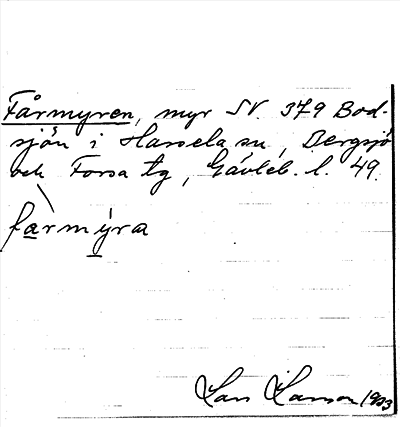 Fårmyren, myr SV. 379 Bod-
sjön i Hassela sn, Bergsjö
och Forsa tg, Gävleb. l. 49.
fårmýra
Lars Larsson 1933